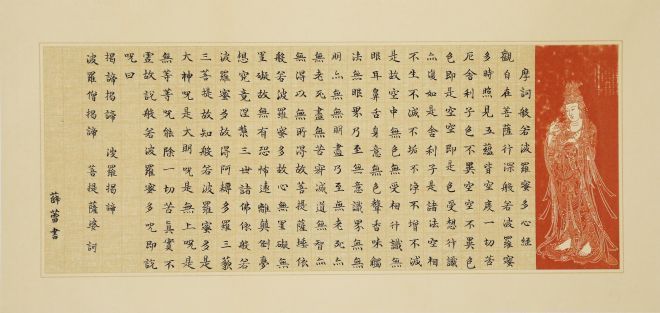 摩訶般若波羅蜜多心經
觀自在菩薩行深般若波羅蜜
多時照見五蘊皆空度一切苦
厄舍利子色不異空空不異色
色即是空空即是色受想行識
亦復如是舍利子是諸法空相
不生不滅不垢不淨不增不減
是故空中無色無受想行識無
眼耳鼻舌身意無色聲香味觸
法無眼界乃至無意識界無無
明亦無無明盡乃至無老死亦
無老死盡無苦集滅道無智亦
無得以無所得故菩提薩埵依
般若波羅蜜多故心無罣礙無
罣礙故無有恐怖遠離顛倒夢
想究竟涅槃三世諸佛依般若
波羅蜜多故得阿耨多羅三藐
三菩提故知般若波羅蜜多是
大神呪是大明呪是無上呪是
無等等呪能除一切苦真實不
虛故說般若波羅蜜多呪即說
呪曰
揭諦揭諦 波羅揭諦
波羅僧揭諦 菩提薩婆訶
薛蕾書